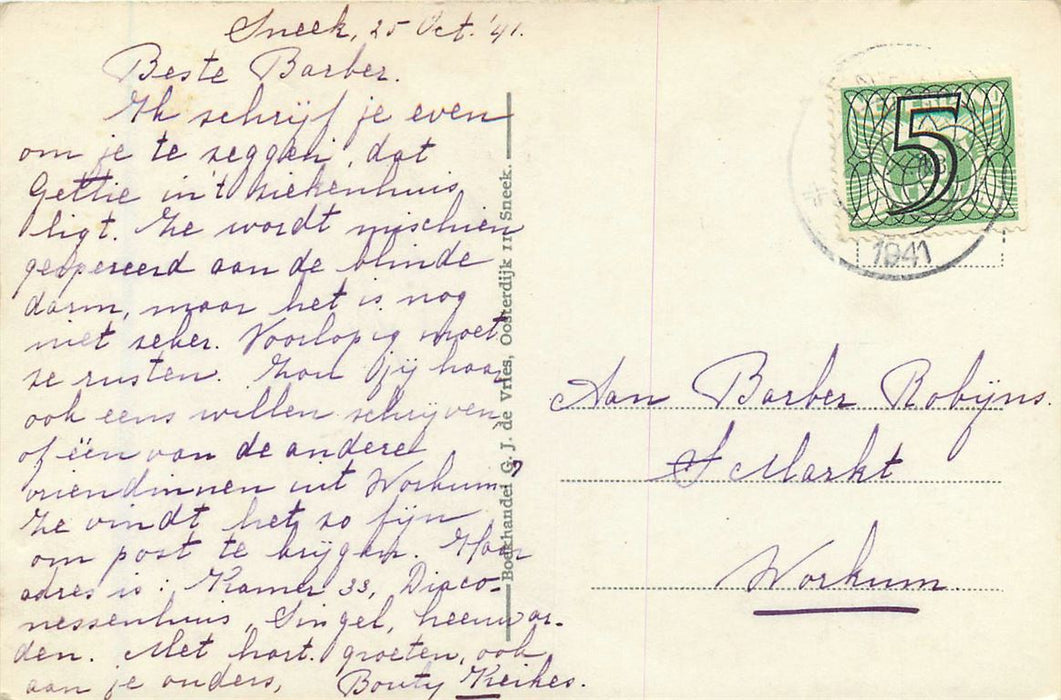 Sneek, 25 Oct. '41.
Beste Barber.
Ik schrijf je even
om je te zeggen, dat
Gettie in 't ziekenhuis
ligt. Ze wordt mischien
geopereerd aan de blinde
darm, maar het is nog
niet zeker. Voorlopig moet
ze rusten. Zou jij haar
ook eens willen schrijven,
of één van de andere
vriendinnen uit Workum?
Ze vindt het zo fijn
om post te krijgen. Haar
adres is: Kamer 33, Diaco-
nessenhuis, Singel, Leeuwar-
den. Met hart. groeten, ook
aan je ouders,
Bouty Keikes.
Boekhandel G. J. de Vries, Oosterdijk 11 Sneek.
5
1941
Aan Barber Robijns.
Markt
Workum.